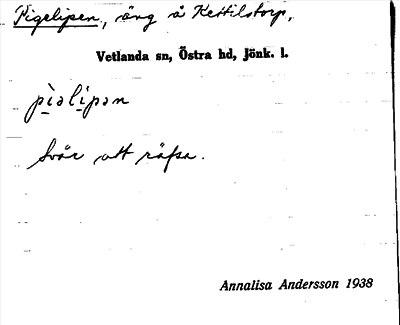 Pigelipen, äng å Kettilstorp,
Vetlanda sn, Östra hd, Jönk. l.
pìəlipən
Svår att räfsa.
Annalisa Andersson 1938